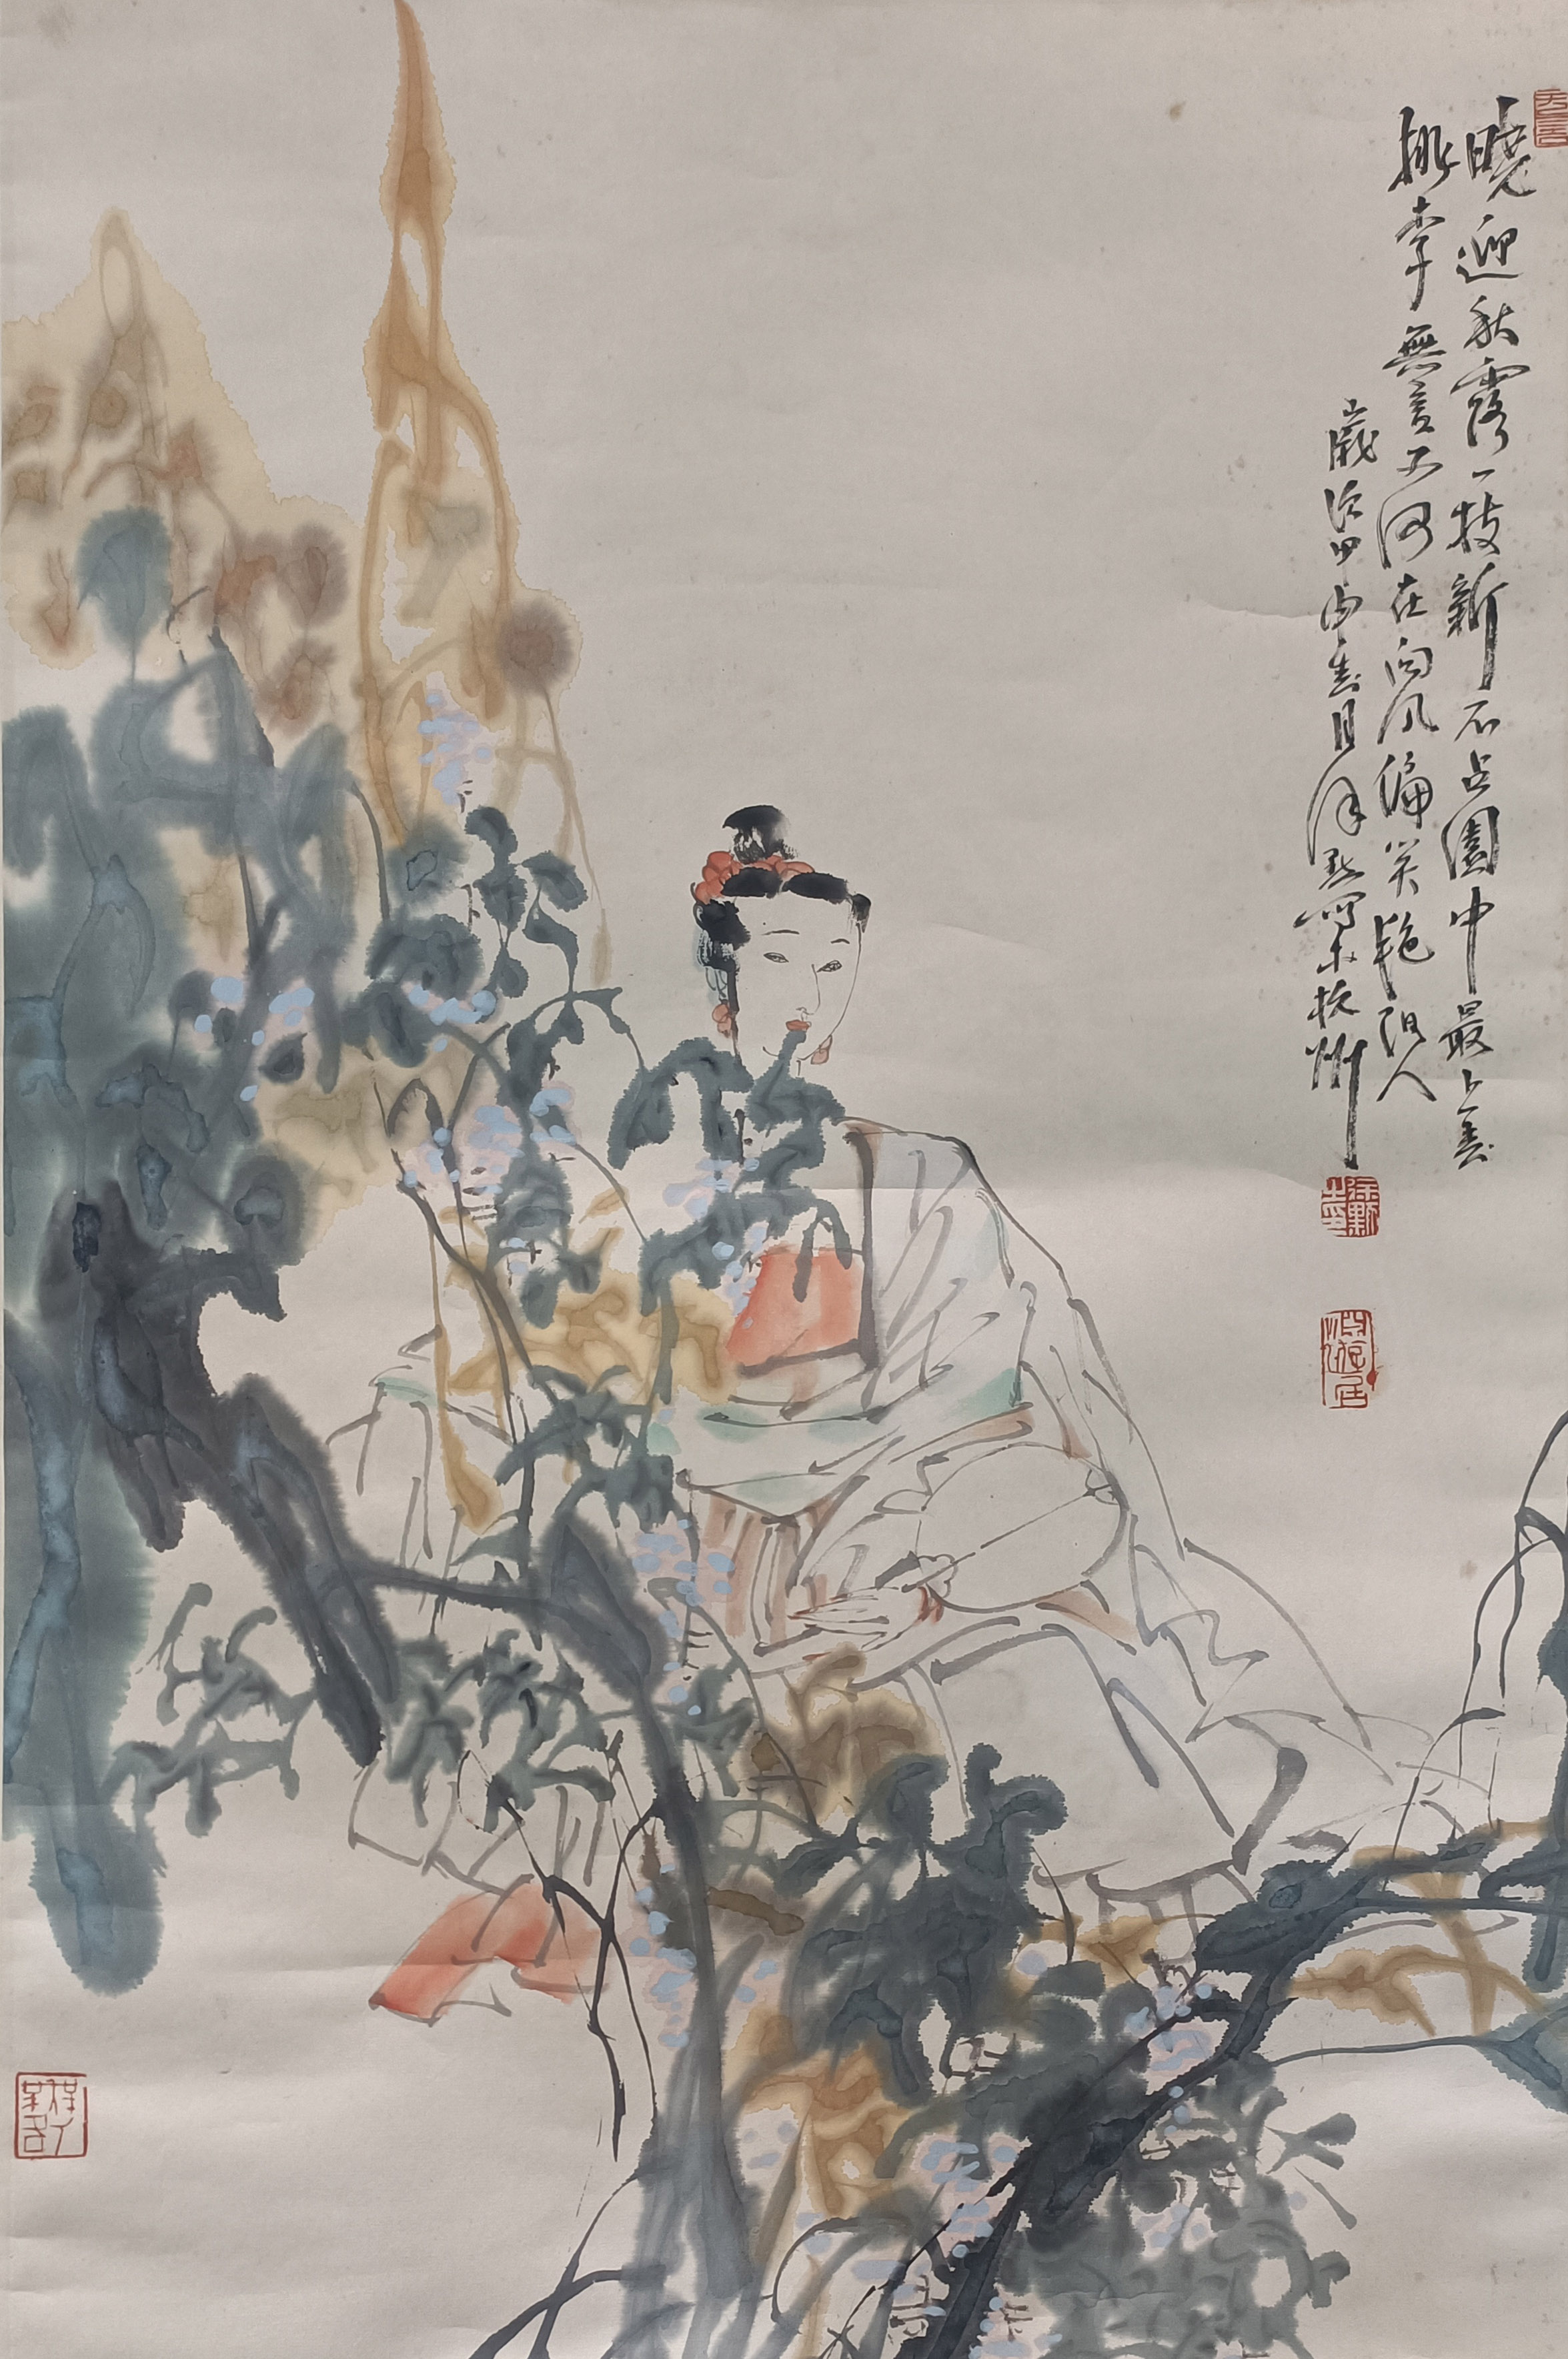 曉迎秋露一枝新不占園中最上春
桃李無言又何在向風偏笑艷陽人
歲次甲申春月徐默寫於杭州